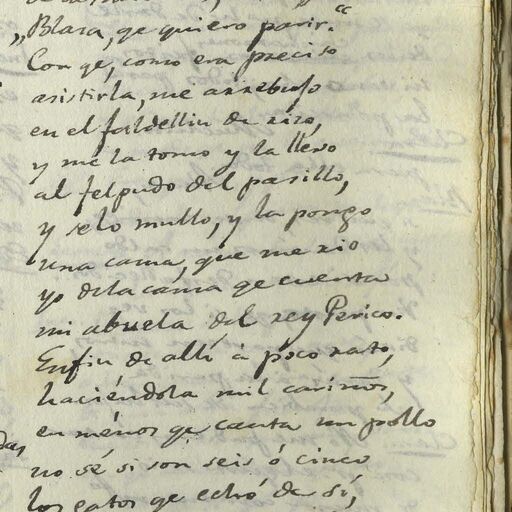 „Blasa, qe quiero parir.“
Con qe, como era preciso
asistirla, me arrebujo
en el faldellin de rizo,
y me la tomo y la llevo
al felpudo del pasillo,
y se lo mullo, y la pongo
una cama, que me rio
yo de la cama qe cuenta
mi abuela del rey Perico.
En fin de alli à poco rato,
haciéndola mil cariños,
en ménos qe canta un pollo
no sé si son seis ó cinco
los gatos qe echó de sí,